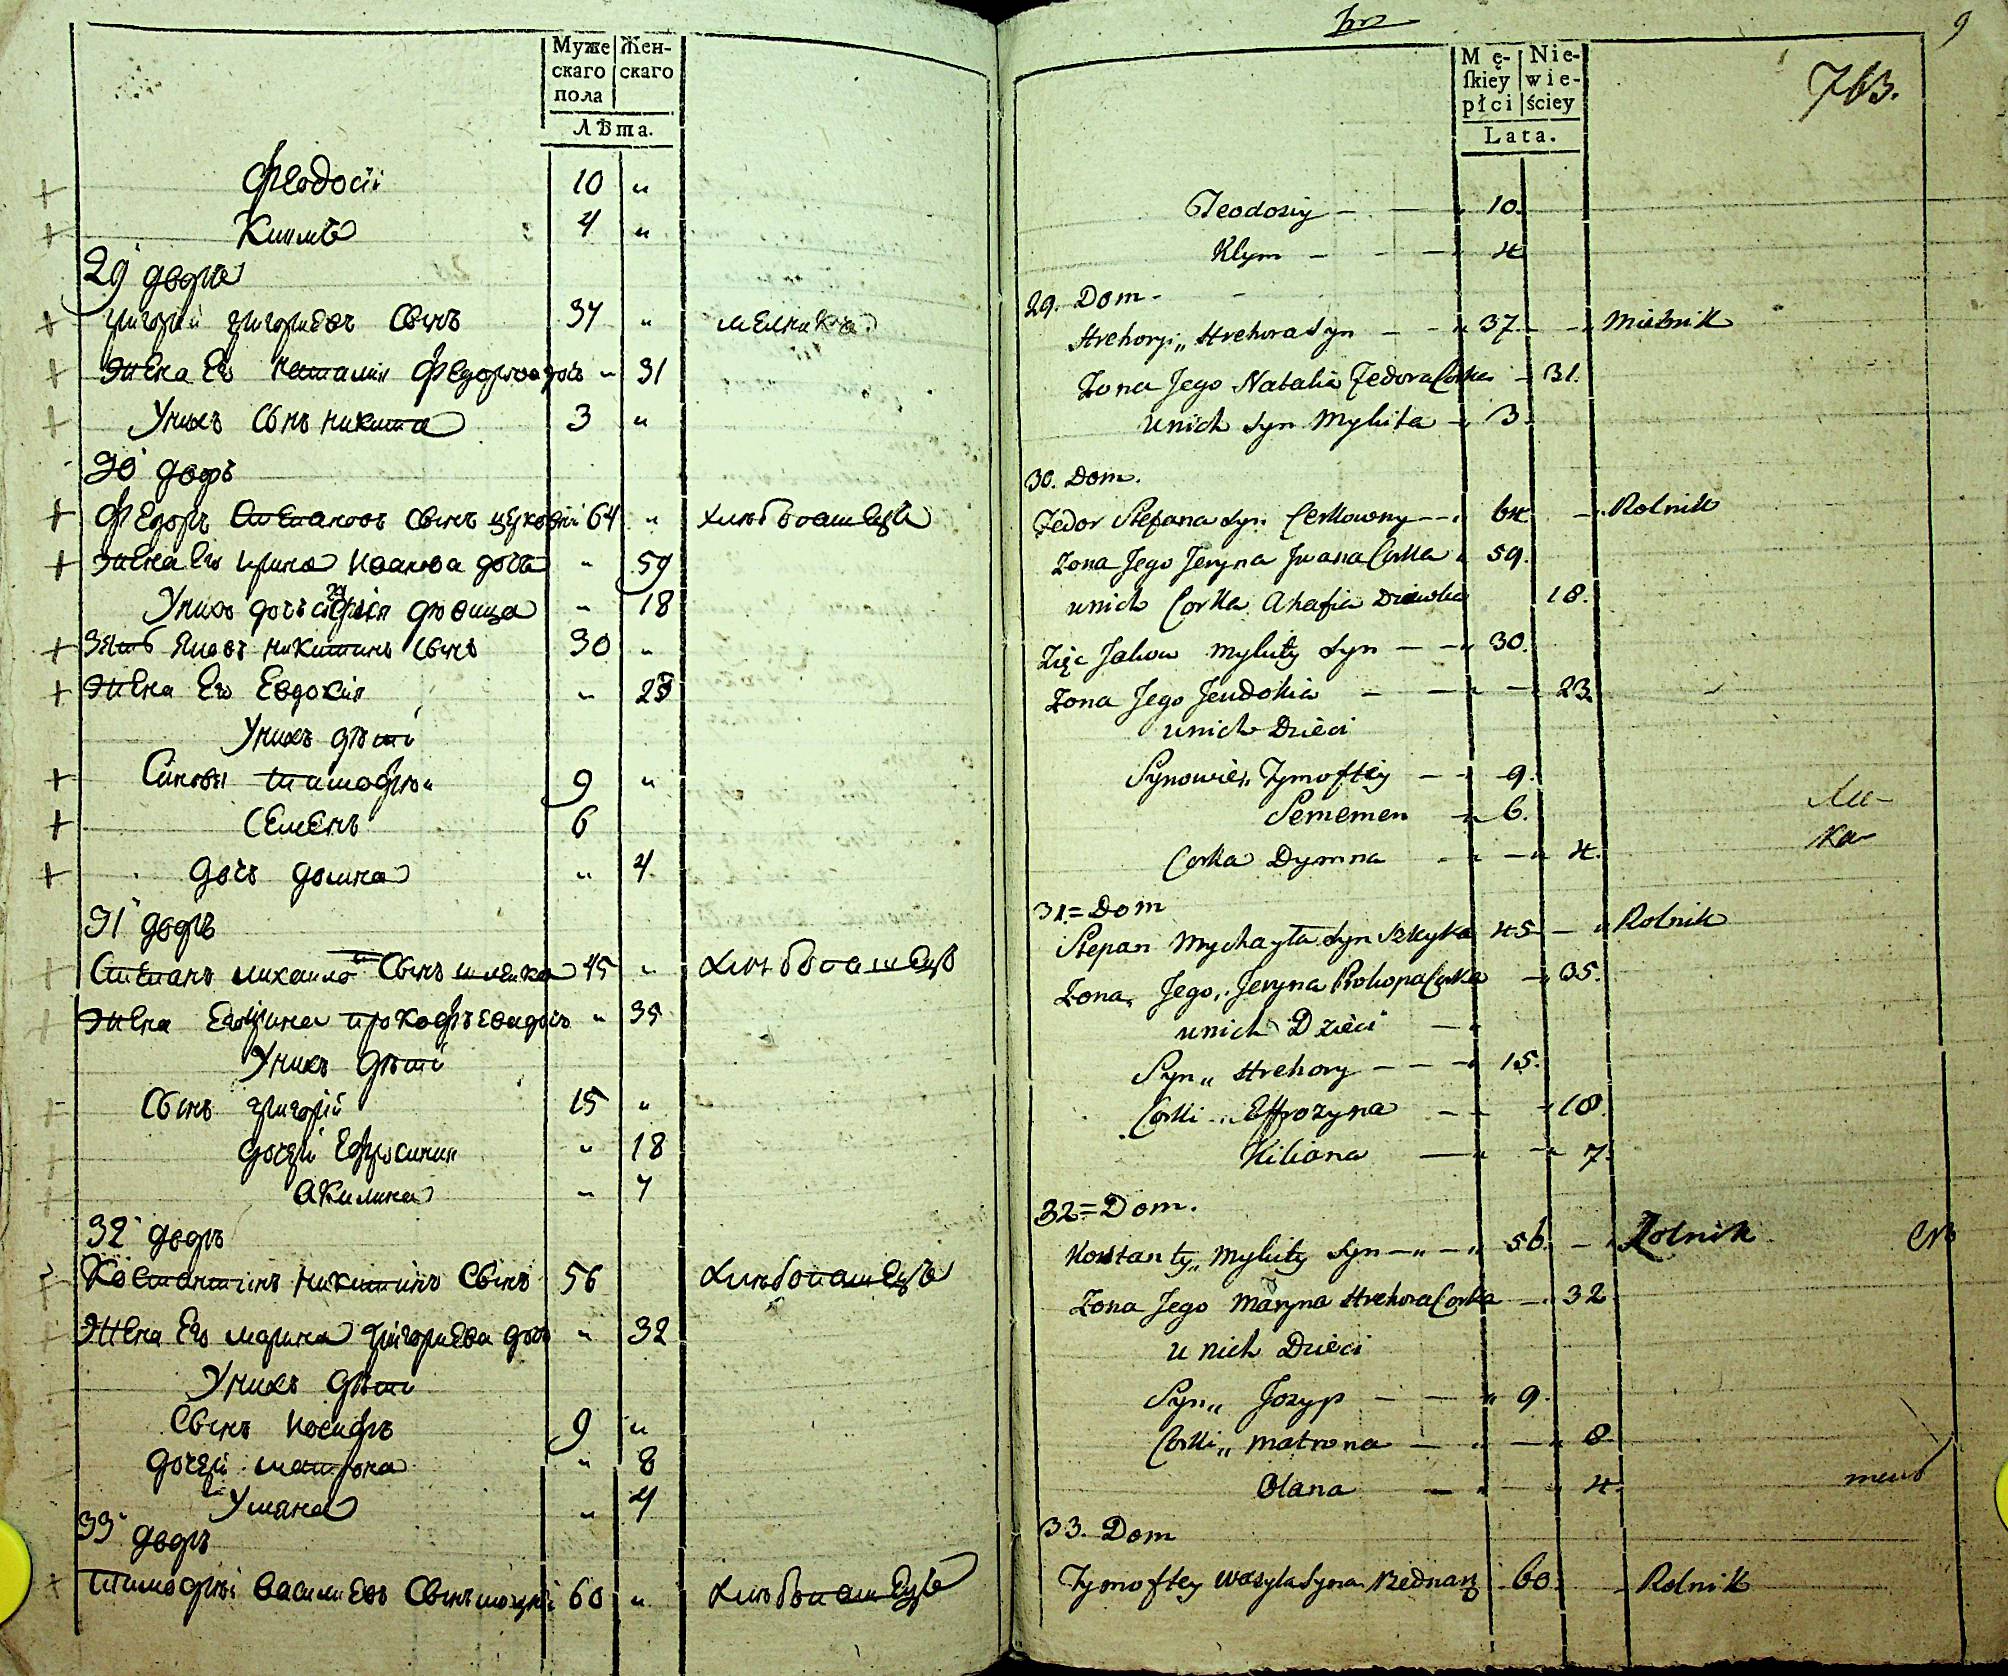 Муже Жен-
скаго скаго
пола
Лѣта.
Феодосіи 10 "
Климъ 4 "
29 дворъ
григорій григориевъ Сынъ 37 " мелникъ
жена Его наталия Федорова дочь " 31
У нихъ Сынъ никита 3 "
30 дворъ
Федоръ Степановъ Сынъ церковній 64 " хлѣбопашецъ
жена Его ирина Иванова дочь " 59
У нихъ дочь агафия дѣвица " 18
Зять Яковъ никитинъ Сынъ 30 "
жена Его Евдокия " 23
У нихъ дѣти
Синовя тимофѣй 9 "
Семенъ 6
дочь домна " 4
31 дворъ
Степанъ михаиловъ Сынъ шлика 45 " хлѣбопашецъ
жена Его ирина прокофьева дочь " 35
У нихъ дѣти
Сынъ григорій 15 "
дочери Ефросиния " 18
акилина " 7
32 дворъ
Костантинъ никитинъ Сынъ 56 хлѣбопашецъ
жена Его марина григориева дочь " 32
У нихъ дѣти
Сынъ иосифъ 9 "
дочери матрона " 8
Уляна " 4
33 дворъ
тимофѣй василиевъ Сынъ 60 " хлѣбопашецъ
9
763.
Mę- Nie-
ſkiey wie-
płci ściey
Lata.
Teodoziy 10.
Klym 4
29. Dom.
Hrehoryi „ Hrehora Syn 37 Mielnik
Zona Jego Natalia Fedora Corka 31.
u nich Syn Mykita 3
30. Dom.
Fedor Stefana Syn Cerkowny 64 Rolnik
Zona Jego Jeryna Jwana Corka 59.
u nich Corka Ahafia Dziewka 18.
Zięc Jakow Mykity Syn 30.
Zona Jego Jeudokia 23.
u nich Dzieci
Synowie „ Tymoftey 9.
Sememen 6.
Corka Dymna 4.
31.= Dom
Stepan Mychayła Syn Szkyka 45 Rolnik
Zona Jego, Jeryna Prokopa Corka 35.
u nich Dzieci
Syn „ Hrehory 15.
Corki „ Effrozyna 18.
Kiliana 7.
32= Dom.
Kostanty „ Mykity Syn 56. Rolnik
Zona Jego Maryna Hrehora Corka 32
u nich Dzieci
Syn „ Jozyp 9.
Corki „ Matrona 8
Olana 4.
33. Dom
Tymoftey Wasyla Syna Bednarz 60. Rolnik